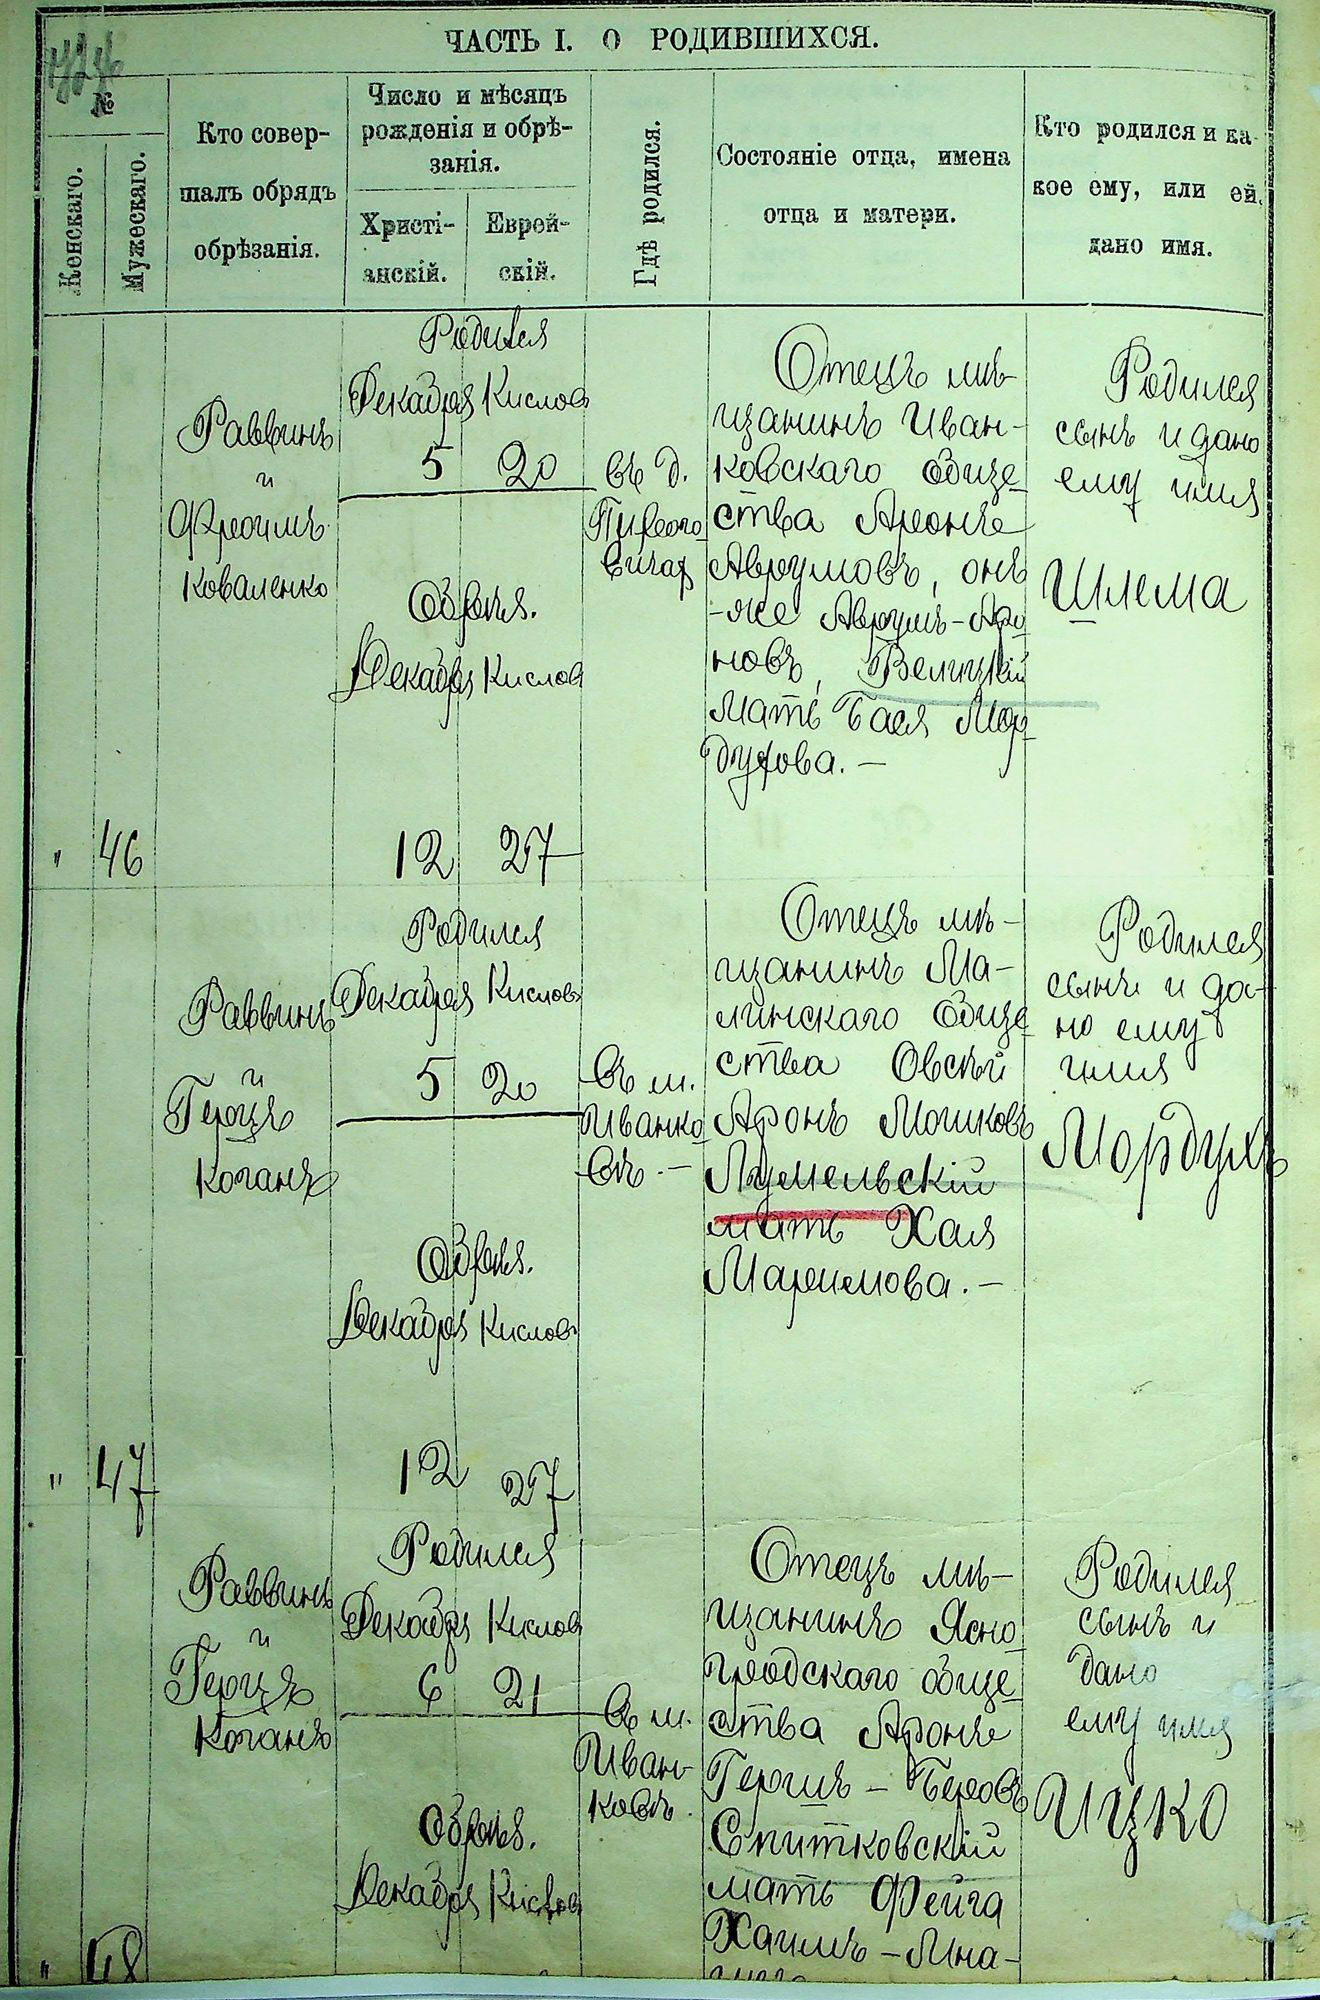 ЧАСТЬ I. О РОДИВШИХСЯ.
№
Женскаго.
Мужескаго.
Кто совер-
шалъ обрядъ
обрѣзанія.
Число и мѣсяцъ
рожденія и обрѣ-
занія.
Христі-
анскій.
Еврей-
скій.
Гдѣ родился.
Состояніе отца, имена
отца и матери.
Кто родился и ка-
кое ему, или ей,
дано имя.
" 46
Раввинъ
и
Фроимъ
Коваленко
Родился
Декабря Кислов
5 20
Обрѣз.
Декабря Кислов
12 27
въ д.
Отецъ мѣ-
щанинъ Иван-
ковскаго обще-
ства Аронъ
Аврумовъ, онъ
-же Аврумъ-Аро
новъ, Велицкій
мать Бася Мор-
духова. —
Родился
сынъ и дано
ему имя
Шлема
" 47
Раввинъ
и
Герцъ
Коганъ
Родился
Декабря Кислов
5 20
Обрѣз.
Декабря Кислов
12 27
Въ м.
Иванко
вѣ. —
Отецъ мѣ-
щанинъ Ма-
линскаго обще
ства Овсѣй
Аронъ Мошковъ
мать Хая
Маримова. —
Родился
сынъ и да-
но ему
имя
Мордухъ
" 48
Раввинъ
и
Герцъ
Коганъ
Родился
Декабря Кислов
6 21
Обрѣз.
Декабря Кислов
Въ м.
Иван-
ковѣ.
Отецъ мѣ-
щанинъ Ясно
городскаго обще-
ства Аронъ
Гершъ - Беровъ
Спитковскій
мать Фейга
Хаимъ -
Родился
сынъ и
дано
ему имя
Ицко